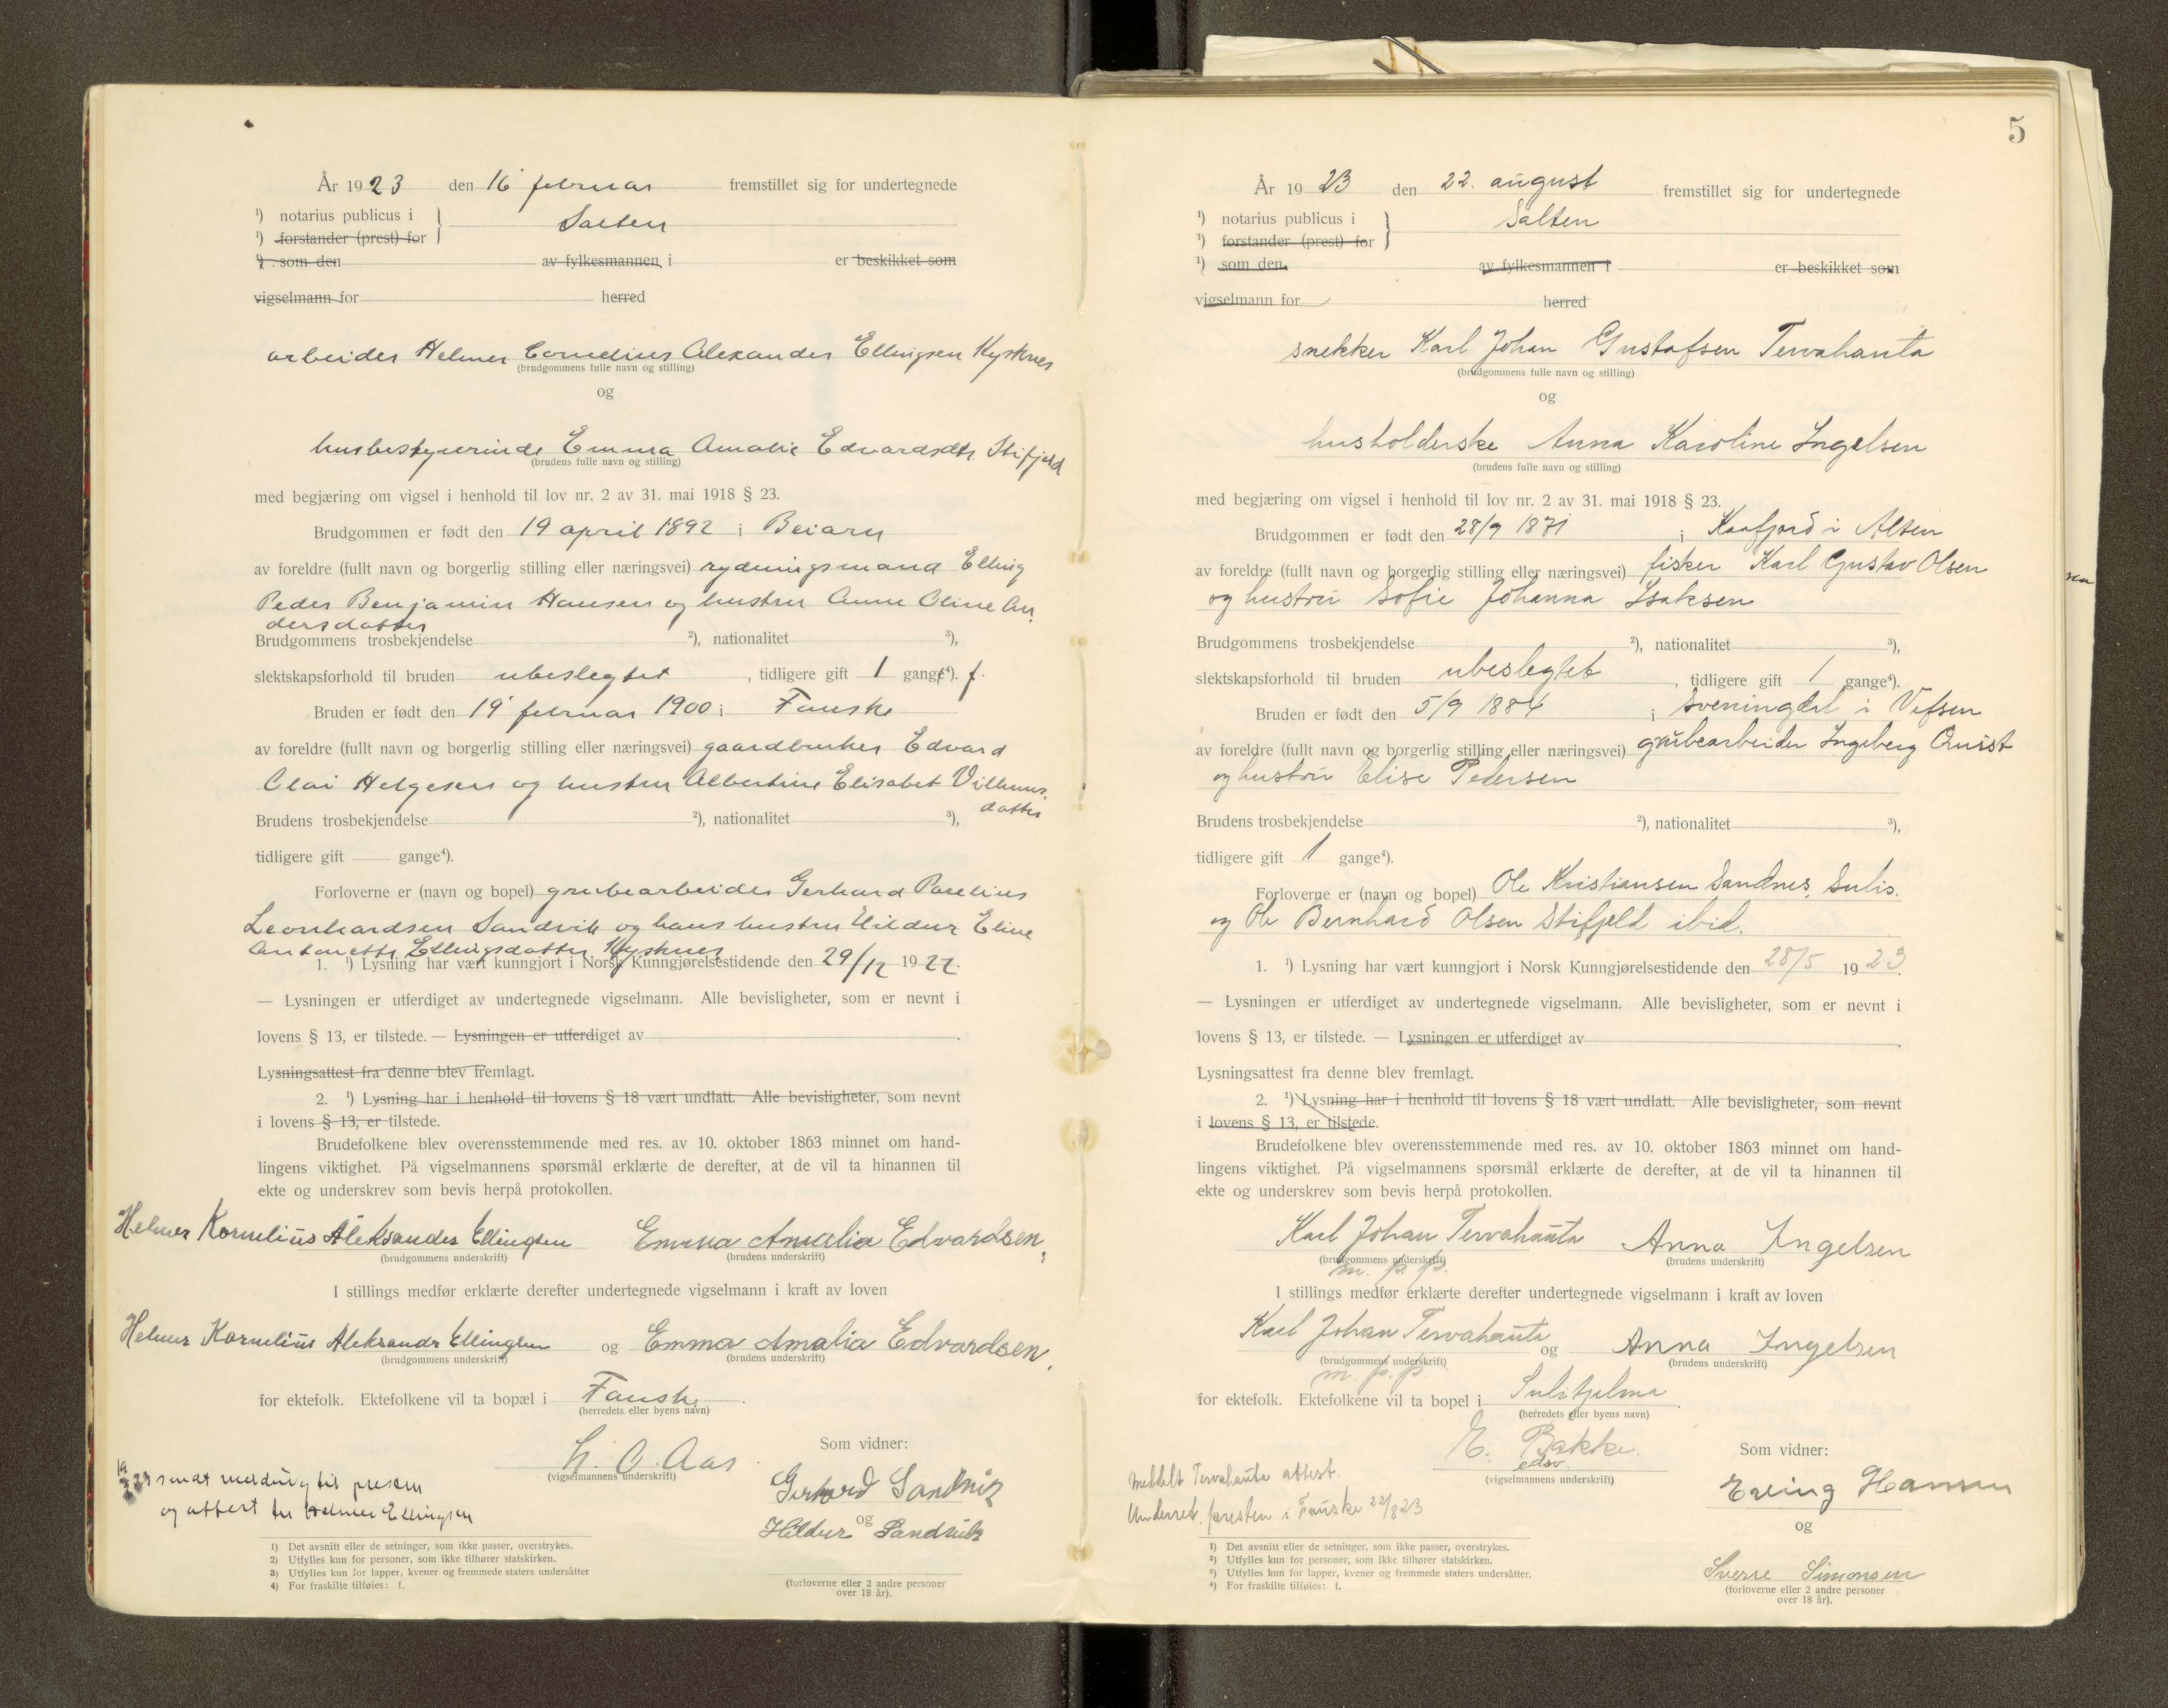 År 1923 den 16 februar fremstillet sig for undertegnede
¹) notarius publicus i
Salten
¹) forstander (prest) for
¹) som den av fylkesmannen i er beskikket som
vigselmann for herred
arbeider Helmer Cornelius Alexander Ellingsen Kysknes
(brudgommens fulle navn og stilling)
og
husbestyrerinde Emma Amalie Edvardsdtr Stifjeld
(brudens fulle navn og stilling)
med begjæring om vigsel i henhold til lov nr. 2 av 31. mai 1918 § 23.
Brudgommen er født den 19 april 1892 i Beiarn
av foreldre (fullt navn og borgerlig stilling eller næringsvei) rydningsmand Elling
Peder Benjamin Hansen og hustru Anne Oline An
dersdatter
Brudgommens trosbekjendelse ²), nationalitet ³),
slektskapsforhold til bruden ubeslegtet, tidligere gift 1 gange⁴). f.
Bruden er født den 19 februar 1900 i Fauske
av foreldre (fullt navn og borgerlig stilling eller næringsvei) gaardbruker Edvard
Olai Helgesen og hustru Albertine Elisabet Vilhms.
datter
Brudens trosbekjendelse ²), nationalitet ³),
tidligere gift — gange⁴).
Forloverne er (navn og bopel) grubearbeider Gerhard Parelius
Leonhardsen Sandvik og hans hustru Hildur Eline
Antonette Ellingsdatter Kysknes
1. ¹) Lysning har vært kunngjort i Norsk Kunngjørelsestidende den 29/12 1922.
— Lysningen er utferdiget av undertegnede vigselmann. Alle bevisligheter, som er nevnt i
lovens § 13, er tilstede. — Lysningen er utferdiget av
Lysningsattest fra denne blev fremlagt.
2. ¹) Lysning har i henhold til lovens § 18 vært undlatt. Alle bevisligheter, som nevnt
i lovens § 13, er tilstede.
Brudefolkene blev overensstemmende med res. av 10. oktober 1863 minnet om hand-
lingens viktighet. På vigselmannens spørsmål erklærte de derefter, at de vil ta hinannen til
ekte og underskrev som bevis herpå protokollen.
Helmer Kornelius Aleksander Ellingsen Emma Amalia Edvardsen,
(brudgommens underskrift) (brudens underskrift)
I stillings medfør erklærte derefter undertegnede vigselmann i kraft av loven
Helmer Kornelius Aleksandr Ellingsen og Emma Amalia Edvardsen,
(brudgommens underskrift) (brudens underskrift)
for ektefolk. Ektefolkene vil ta bopæl i Fauske.
(herredets eller byens navn)
Som vidner:
O. Aas
(vigselmannens underskrift)
Gerhard Sandvik
og
Hildur Sandvik
(forloverne eller 2 andre personer
over 18 år).
sendt melding til presten
og attest til Helmer Ellingsen
1) Det avsnitt eller de setninger, som ikke passer, overstrykes.
2) Utfylles kun for personer, som ikke tilhører statskirken.
3) Utfylles kun for lapper, kvener og fremmede staters undersåtter
4) For fraskilte tilføies: f.
5
År 1923 den 22. august fremstillet sig for undertegnede
¹) notarius publicus i
Salten
¹) forstander (prest) for
¹) som den av fylkesmannen i er beskikket som
vigselmann for herred
snekker Karl Johan Gustafsen Tervahauta
(brudgommens fulle navn og stilling)
og
husholderske Anna Karoline Ingelsen
(brudens fulle navn og stilling)
med begjæring om vigsel i henhold til lov nr. 2 av 31. mai 1918 § 23.
Brudgommen er født den 28/9 1871 i Kaafjord i Alten
av foreldre (fullt navn og borgerlig stilling eller næringsvei) fisker Karl Gustav Olsen
og hustru Sofie Johanna Isaksen
Brudgommens trosbekjendelse ²), nationalitet ³),
slektskapsforhold til bruden ubeslegtet, tidligere gift 1 gange⁴).
Bruden er født den 5/9 1884 i Sveningdal i Vefsen
av foreldre (fullt navn og borgerlig stilling eller næringsvei) grubearbeider Ingeberg Qvist
og hustru Elise Pedersen
Brudens trosbekjendelse ²), nationalitet ³),
tidligere gift 1 gange⁴).
Forloverne er (navn og bopel) Ole Kristiansen Sandnes, Sulis.
og Ole Bernhard Olsen Stifjeld ibid.
1. ¹) Lysning har vært kunngjort i Norsk Kunngjørelsestidende den 28/5 1923.
— Lysningen er utferdiget av undertegnede vigselmann. Alle bevisligheter, som er nevnt i
lovens § 13, er tilstede. — Lysningen er utferdiget av
Lysningsattest fra denne blev fremlagt.
2. ¹) Lysning har i henhold til lovens § 18 vært undlatt. Alle bevisligheter, som nevnt
i lovens § 13, er tilstede.
Brudefolkene blev overensstemmende med res. av 10. oktober 1863 minnet om hand-
lingens viktighet. På vigselmannens spørsmål erklærte de derefter, at de vil ta hinannen til
ekte og underskrev som bevis herpå protokollen.
Karl Johan Tervahauta Anna Ingelsen
(brudgommens underskrift) (brudens underskrift)
m. p. p.
I stillings medfør erklærte derefter undertegnede vigselmann i kraft av loven
Karl Johan Tervahauta og Anna Ingelsen
(brudgommens underskrift) (brudens underskrift)
m. p. p.
for ektefolk. Ektefolkene vil ta bopel i Sulitjelma.
(herredets eller byens navn)
E. Bakke.
edsv.
(vigselmannens underskrift)
Som vidner:
Erling Hansen
og
Sverre Simonsen
(forloverne eller 2 andre personer
over 18 år).
meddelt Tervahauta attest.
Underret. presten i Fauske 22/8 23
1) Det avsnitt eller de setninger, som ikke passer, overstrykes.
2) Utfylles kun for personer, som ikke tilhører statskirken.
3) Utfylles kun for lapper, kvener og fremmede staters undersåtter.
4) For fraskilte tilføies: f.